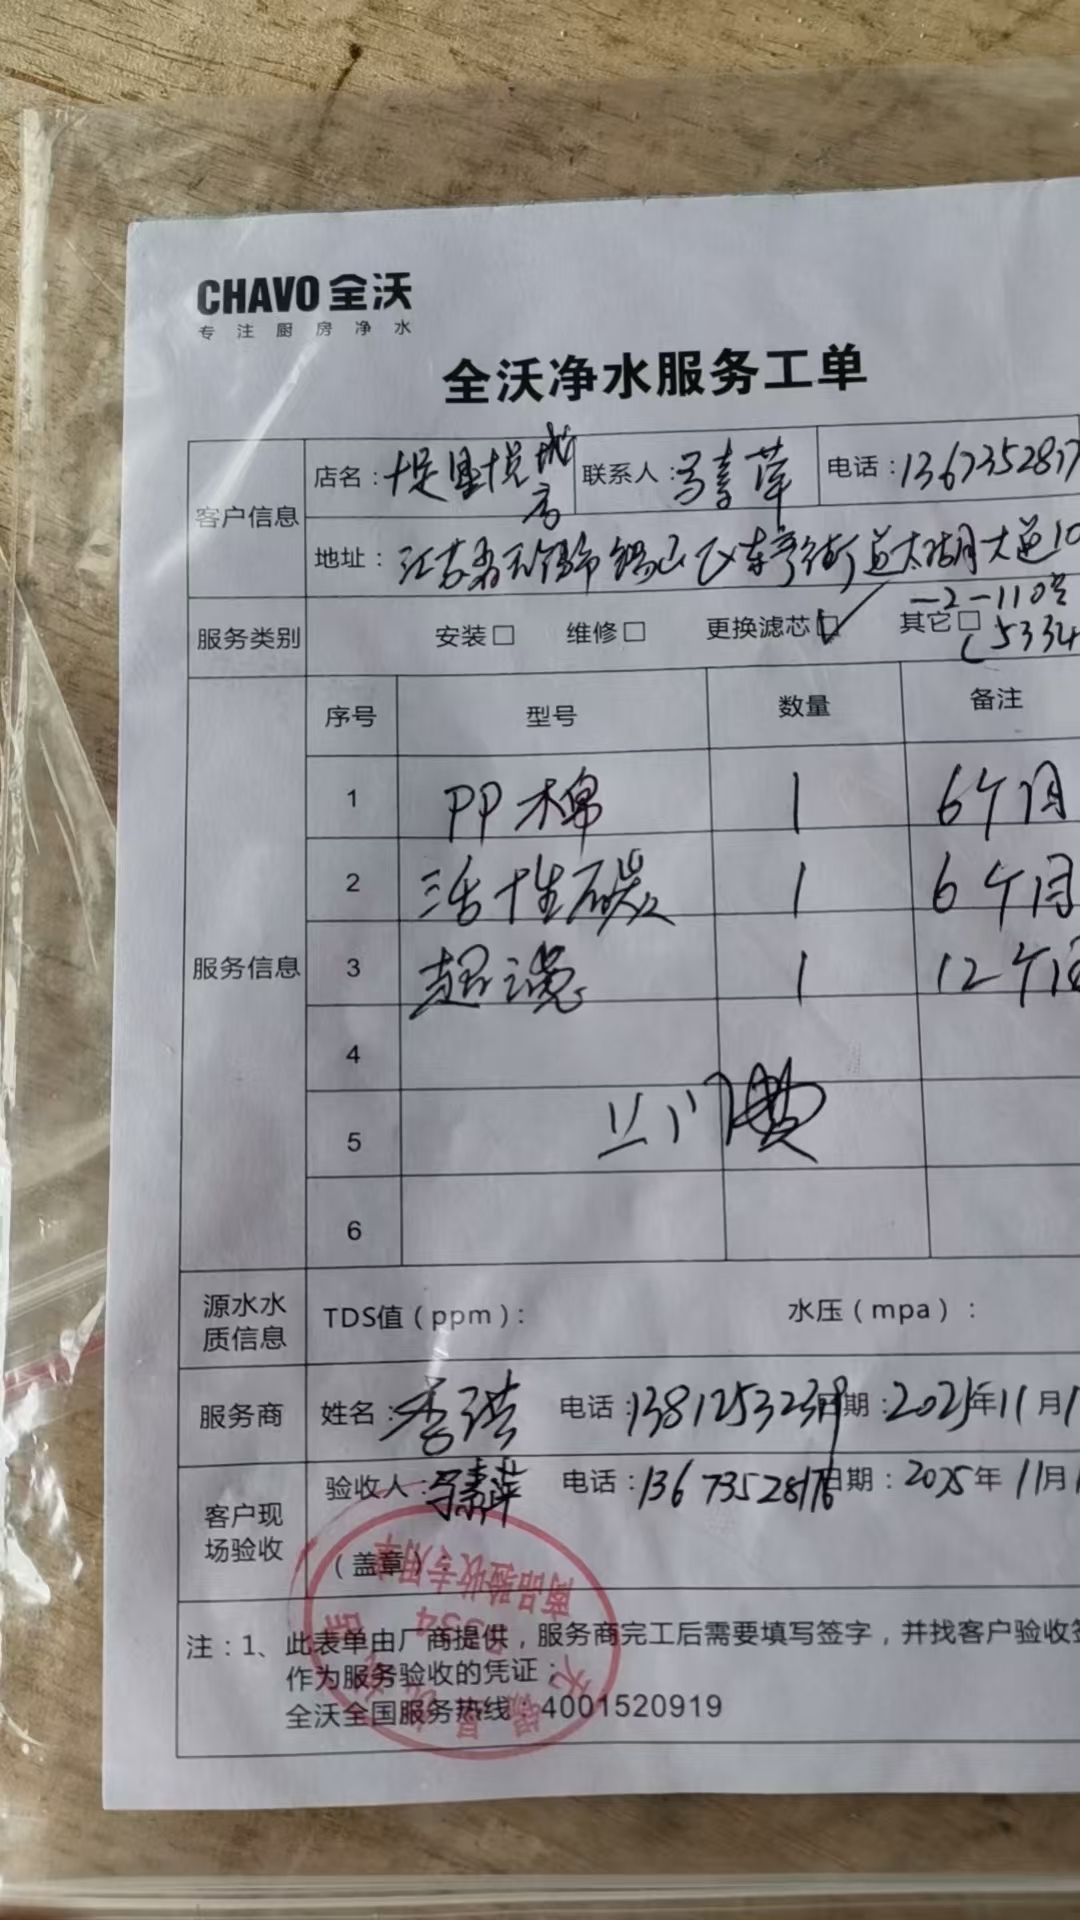 CHAVO 全沃
专注厨房净水
全沃净水服务工单
客户信息
店名：堤里悦城店 联系人：马素萍 电话：1367352817
地址：江苏省无锡市锡山区东亭街道太湖大道10
-2-110号
(5334
服务类别 安装□ 维修□ 更换滤芯☑ 其它□
服务信息
序号 型号 数量 备注
1 PP棉 1 6个月
2 活性碳 1 6个月
3 超滤 1 12个月
4
5 上门费
6
源水水质信息 TDS值（ppm）： 水压（mpa）：
服务商 姓名： 电话： 日期：2025年11月1
客户现场验收 验收人：马素萍 电话：13673528176 日期：2025年11月1
（盖章）
商品验收专用章
5334
注：1、此表单由厂商提供，服务商完工后需要填写签字，并找客户验收签
作为服务验收的凭证；
全沃全国服务热线：4001520919